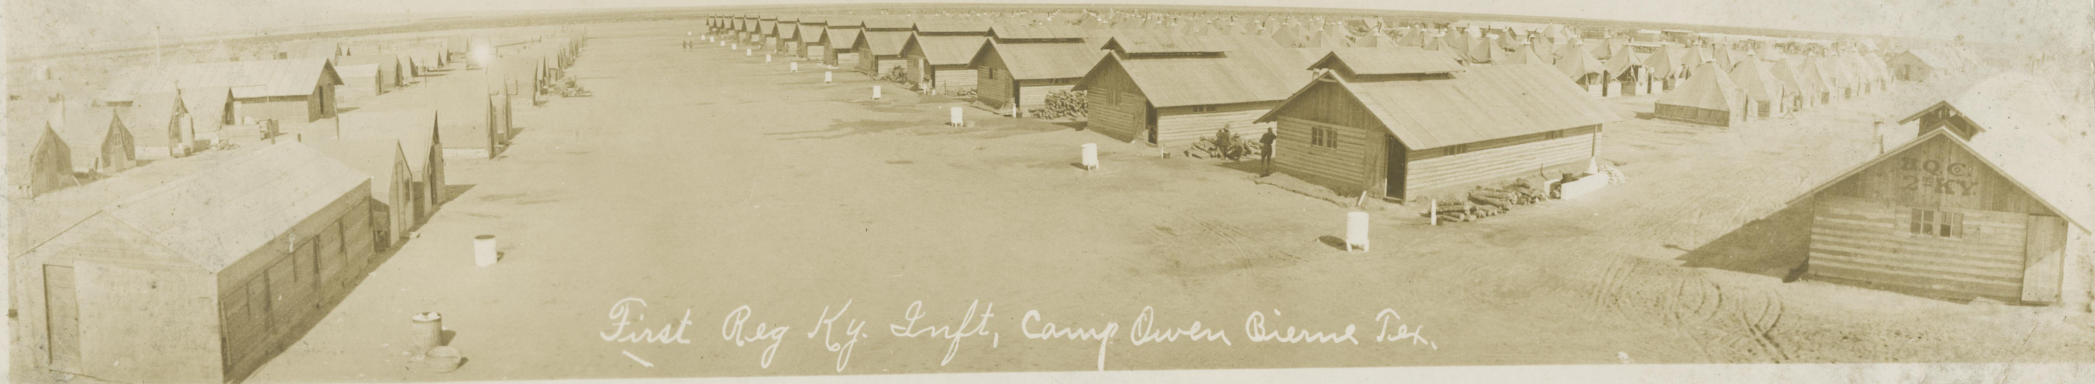 Q.C.
2nd KY.
First Reg Ky. Inft, Camp Owen Bierne Tex.